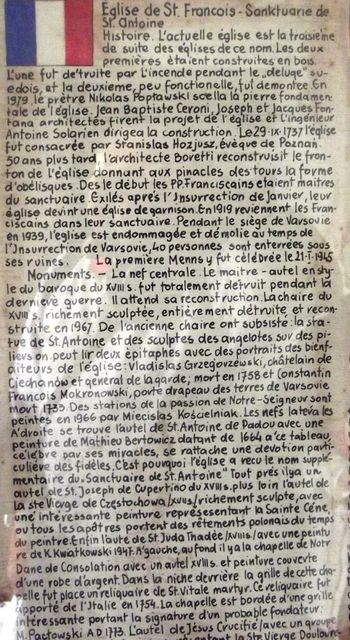 Eglise de St. François - Sanktuarie de
St. Antoine
Histoire. L'actuelle église est la troisième
de suite des églises de ce nom. Les deux
premières étaient construites en bois.
L'une fut détruite par l'incende pendant le "deluge" su-
edois, et la deuxième, peu fonctionelle, fut demontée. En
1979, le prêtre Nikolas Popławski scella la pierre fondamen-
tale de l'église. Jean Baptiste Ceroni, Joseph et Jacques Fon-
tana architectes firent la projet de l'église et l'ingénieur
Antoine Solarien dirigea la construction. Le 29.IX.1737 l'église
fut consacrée par Stanislas Hozjusz, évêque de Poznań.
50 ans plus tard, l'architecte Boretti reconstruisit le fron-
ton de l'église donnant aux pinacles des tours la forme
d'obélisques. Des le début les PP. Franciscains étaient maîtres
du sanctuaire. Exilés après l'Jnsurrection de Janvier, leur
église devint une église de garnison. En 1919 reviennent les Fran-
ciscains dans leur sanctuaire. Pendant le siège de Varsovie
en 1939, l'église est endommagée et démolie au temps de
l'Jnsurrection de Varsovie, 40 personnes sont enterrées sous
ses ruines. La première Menns y fut célébrée le 21.I.1945
Monuments. - La nef centrale. Le maitre - autel en sty-
le du baroque du XVIII s. fut totalement détruit pendant la
dernière guerre. Il attend sa reconstruction. La chaire du
XVIII s. richement sculptée, entièrement détruite, et recon-
struite en 1967. De l'ancienne chaire ont subsisté: la sta-
tue de St. Antoine et des sculptes des angelots sur des pi-
liers on peut lir deux épitaphes avec des portraits des bienf-
aiteurs de l'église: Vladislas Grzegorzewski, châtelain de
Ciechanów et général de la garde; mort en 1758 et Constantin
François Mokronowski, porte drapeau des terres de Varsovie
mort 1735. Des stations de la passion de Notre-Seigneur sont
peintes en 1966 par Miecislas Kościelniak. Les nefs latérales
A droite se trouve l'autel de St. Antoine de Padou avec une
peinture de Mathieu Bertowicz datant de 1664 a ce tableau,
celèbre par ses miracles, se rattache une dévotion parti-
culière des fidèles. C'est pourquoi l'église a reçu le nom supple-
mentaire du "Sanctuaire de St. Antoine" Tout près il y a un
autel de St. Joseph de Cupertino du XVIII s. plus loin l'autel de
la ste Vierge de Częstochowa /XVIII s./ richement sculpté, avec
une intéressante peinture représentant la Sainte Cène,
où tous les apôtres portent des vêtements polonais du temps
du peintre. Enfin l'autel de St. Juda Thadée /XVIII s./ avec une peintu-
re de K. Kwiatkowski 1947. A gauche, au fond il y a la chapelle de Notr
Dame de Consolation avec un autel XVIII s. et peinture couverte
d'une robe d'argent. Dans la niche derrière la grille de cette cha-
pelle fut place un reliquaire de St. Vitale martyr. Ce reliquaire fut
apporté de l'Italie en 1754. La chapelle est bordée d'une grille
intéressante portant la signature d'un probable fondateur:
M. Pactowski A.D 1773. L'autel de Jésus Crucifié/avec un groupe
la Ste Vierge Doulour